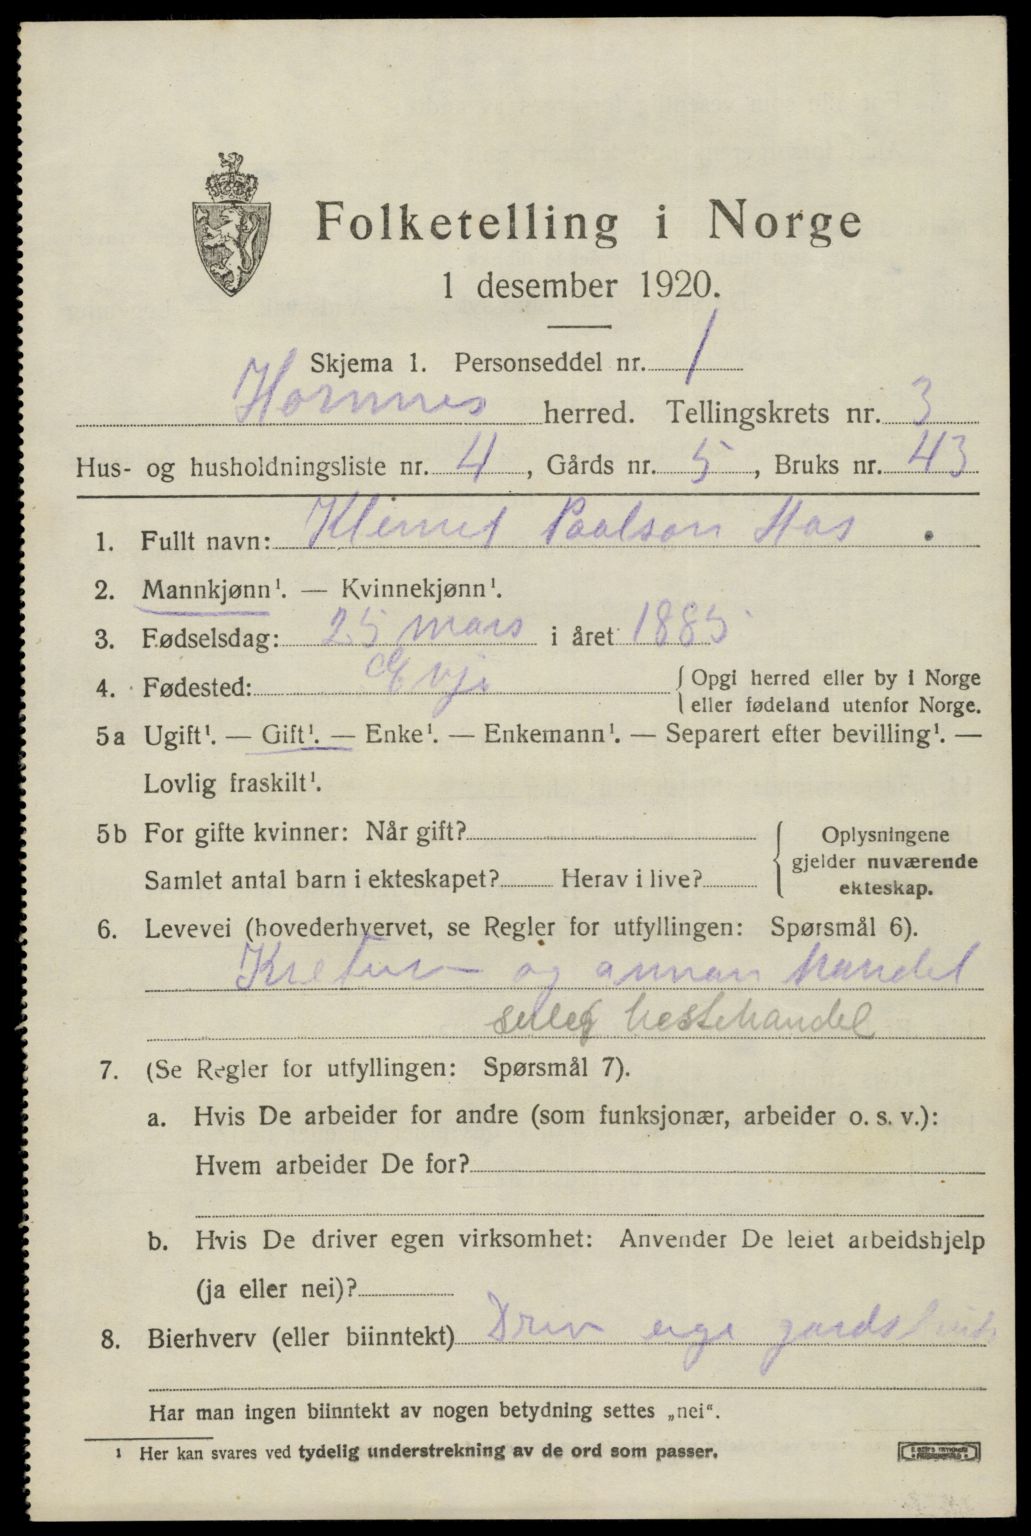 Folketelling i Norge
1 desember 1920.
Skjema 1. Personseddel nr. 1
Hornnes herred. Tellingskrets nr. 3
Hus- og husholdningsliste nr. 4, Gårds nr. 5, Bruks nr. 43
1. Fullt navn: Klemet Paalson Aas
2. Mannkjønn¹. — Kvinnekjønn¹.
3. Fødselsdag: 25 mars i året 1885
4. Fødested: Evje {Opgi herred eller by i Norge
eller fødeland utenfor Norge.
5a Ugift¹. — Gift¹. — Enke¹. — Enkemann¹. — Separert efter bevilling¹. —
Lovlig fraskilt¹.
5b For gifte kvinner: Når gift? { Oplysningene
gjelder nuværende
Samlet antal barn i ekteskapet? Herav i live?
ekteskap.
6. Levevei (hovederhvervet, se Regler for utfyllingen: Spørsmål 6).
Kretur og annan handel
hestehandel
7. (Se Regler for utfyllingen: Spørsmål 7).
a. Hvis De arbeider for andre (som funksjonær, arbeider o. s. v.):
Hvem arbeider De for?
b. Hvis De driver egen virksomhet: Anvender De leiet arbeidshjelp
(ja eller nei)?
8. Bierhverv (eller biinntekt) Driv eige gardsbruk
Har man ingen biinntekt av nogen betydning settes „nei“.
¹ Her kan svares ved tydelig understrekning av de ord som passer.